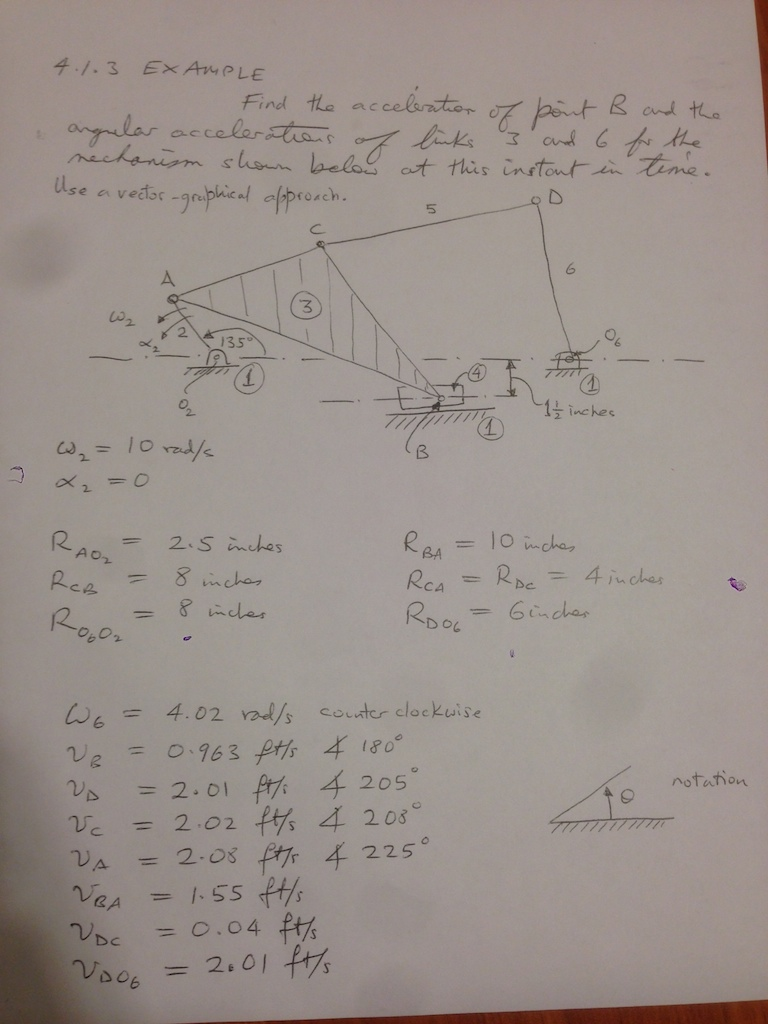 4.1.3 EXAMPLE
Find the acceleration of point B and the
angular accelerations of links 3 and 6 for the
mechanism shown below at this instant in time.
Use a vector-graphical approach.
D
5
C
A
6
3
ω₂
α₂
2
135°
O₆
1
4
1
O₂
1½ inches
1
B
ω₂ = 10 rad/s
α₂ = 0
R_AO₂ = 2.5 inches
R_BA = 10 inches
R_CB = 8 inches
R_CA = R_DC = 4 inches
R_O₆O₂ = 8 inches
R_DO₆ = 6 inches
ω₆ = 4.02 rad/s counter clockwise
v_B = 0.963 ft/s ∡ 180°
v_D = 2.01 ft/s ∡ 205°
notation
θ
v_C = 2.02 ft/s ∡ 208°
v_A = 2.08 ft/s ∡ 225°
v_BA = 1.55 ft/s
v_DC = 0.04 ft/s
v_DO₆ = 2.01 ft/s